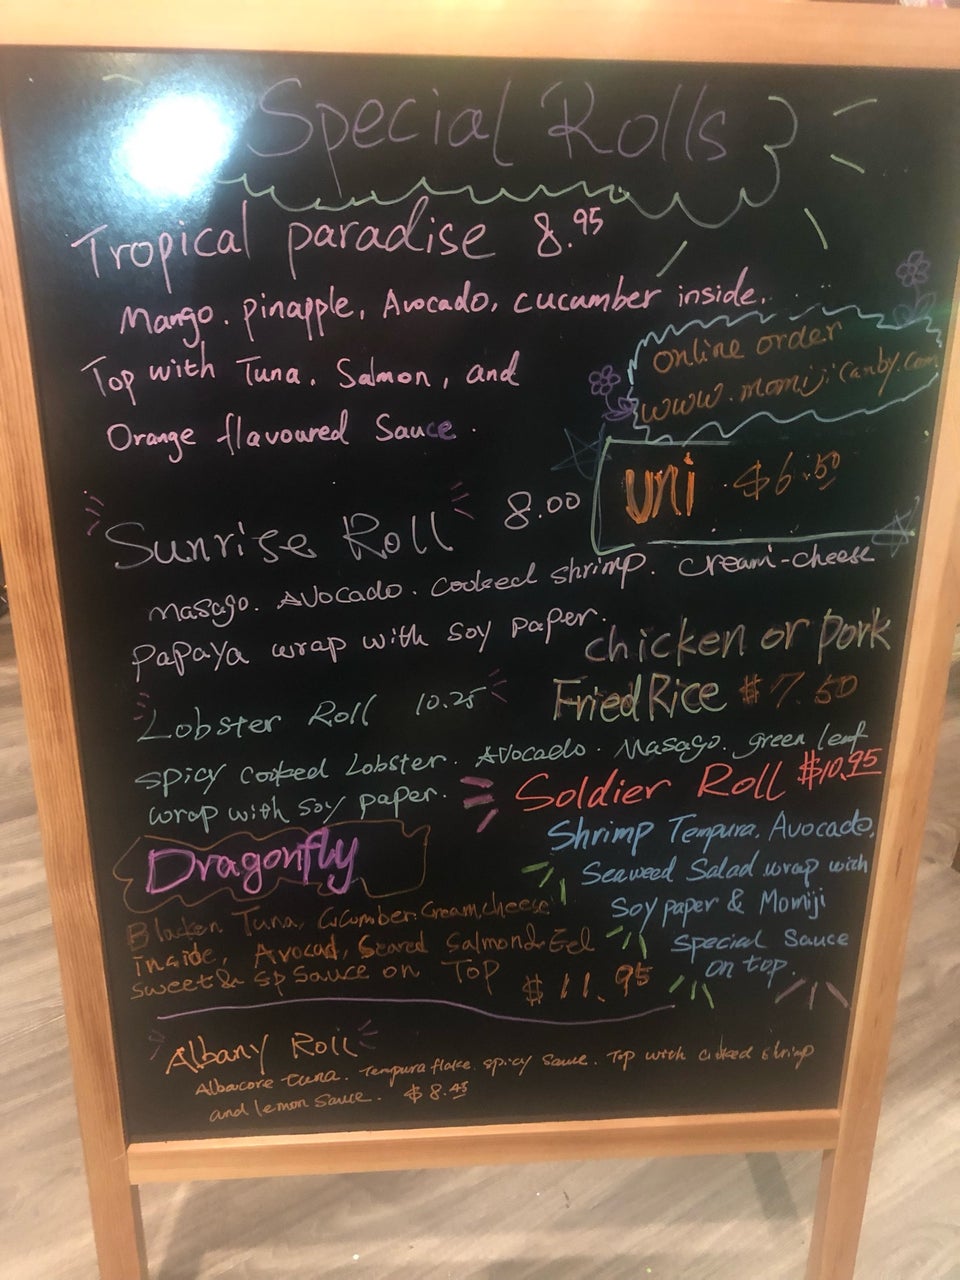 Special Rolls
Tropical paradise 8.95
Mango. pinapple, Avocado, cucumber inside.
Top with Tuna. Salmon, and
Orange flavoured Sauce.
online order
www.momijicanby.com
uni $6.50
Sunrise Roll 8.00
Masago. Avocado. cooked shrimp. cream-cheese
papaya wrap with soy paper.
chicken or pork
Fried Rice $7.50
Lobster Roll 10.25
spicy cooked Lobster. Avocado. Masago. green leaf
wrap with soy paper.
Soldier Roll $10.95
Shrimp Tempura, Avocado,
Seaweed Salad wrap with
Soy paper & Momiji
Special Sauce
on top.
Dragonfly
Blacken Tuna, Cucumber. Cream cheese
Inside, Avocad, Seared Salmon & Eel
sweet & sp Sauce on Top
$11.95
Albany Roll
Albacore tuna. Tempura flake. spicy sauce. Top with cooked shrimp
and lemon sauce. $8.45